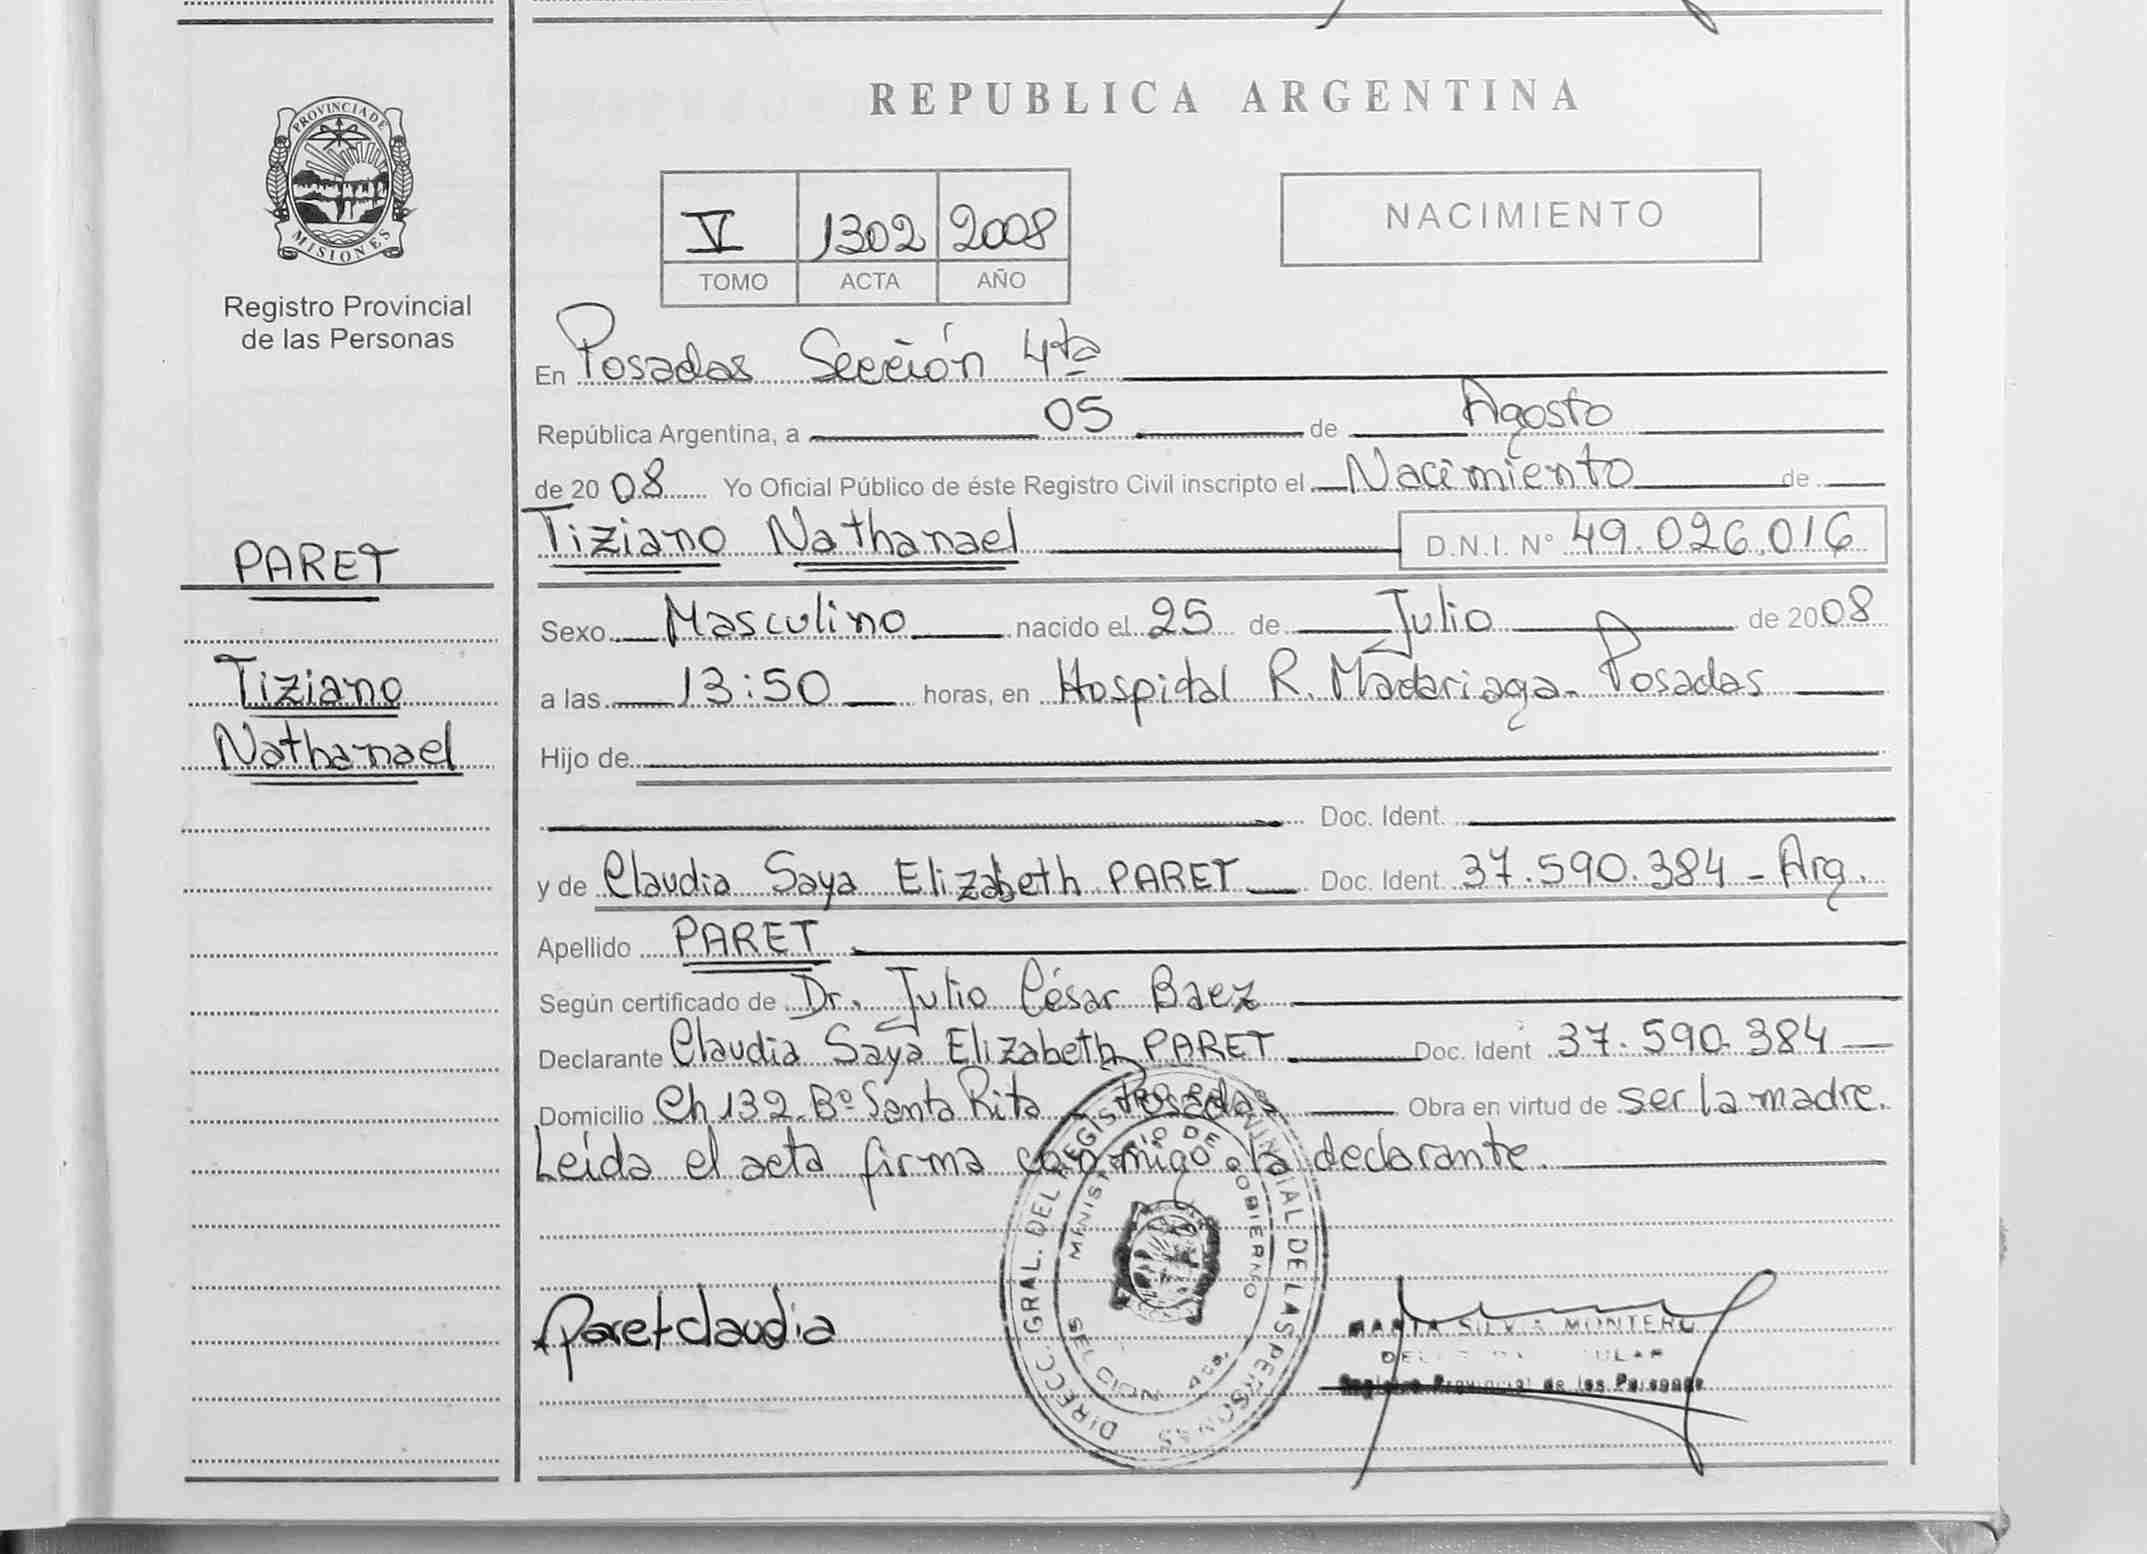 PROVINCIA DE
MISIONES
Registro Provincial
de las Personas
PARET
Tiziano
Nathanael
REPUBLICA ARGENTINA
V 1302 2008
TOMO ACTA AÑO
NACIMIENTO
En Posadas Sección 4ta
República Argentina, a 05 de Agosto
de 2008 Yo Oficial Público de éste Registro Civil inscripto el Nacimiento de
Tiziano Nathanael D.N.I. N° 49.026.016
Sexo Masculino nacido el 25 de Julio de 2008
a las 13:50 horas, en Hospital R. Madariaga - Posadas
Hijo de
Doc. Ident.
y de Claudia Saya Elizabeth PARET Doc. Ident. 37.590.384 - Arg.
Apellido PARET
Según certificado de Dr. Julio César Baez
Declarante Claudia Saya Elizabeth PARET Doc. Ident 37.590.384
Domicilio Ch 132 Bº Santa Rita - Posadas Obra en virtud de ser la madre.
Leída el acta firma conmigo la declarante.
DIRECC. GRAL. DEL REGISTRO PROVINCIAL DE LAS PERSONAS
MINISTERIO DE GOBIERNO
Paret claudia
MARTA SILVIA MONTERO
Registro Provincial de las Personas